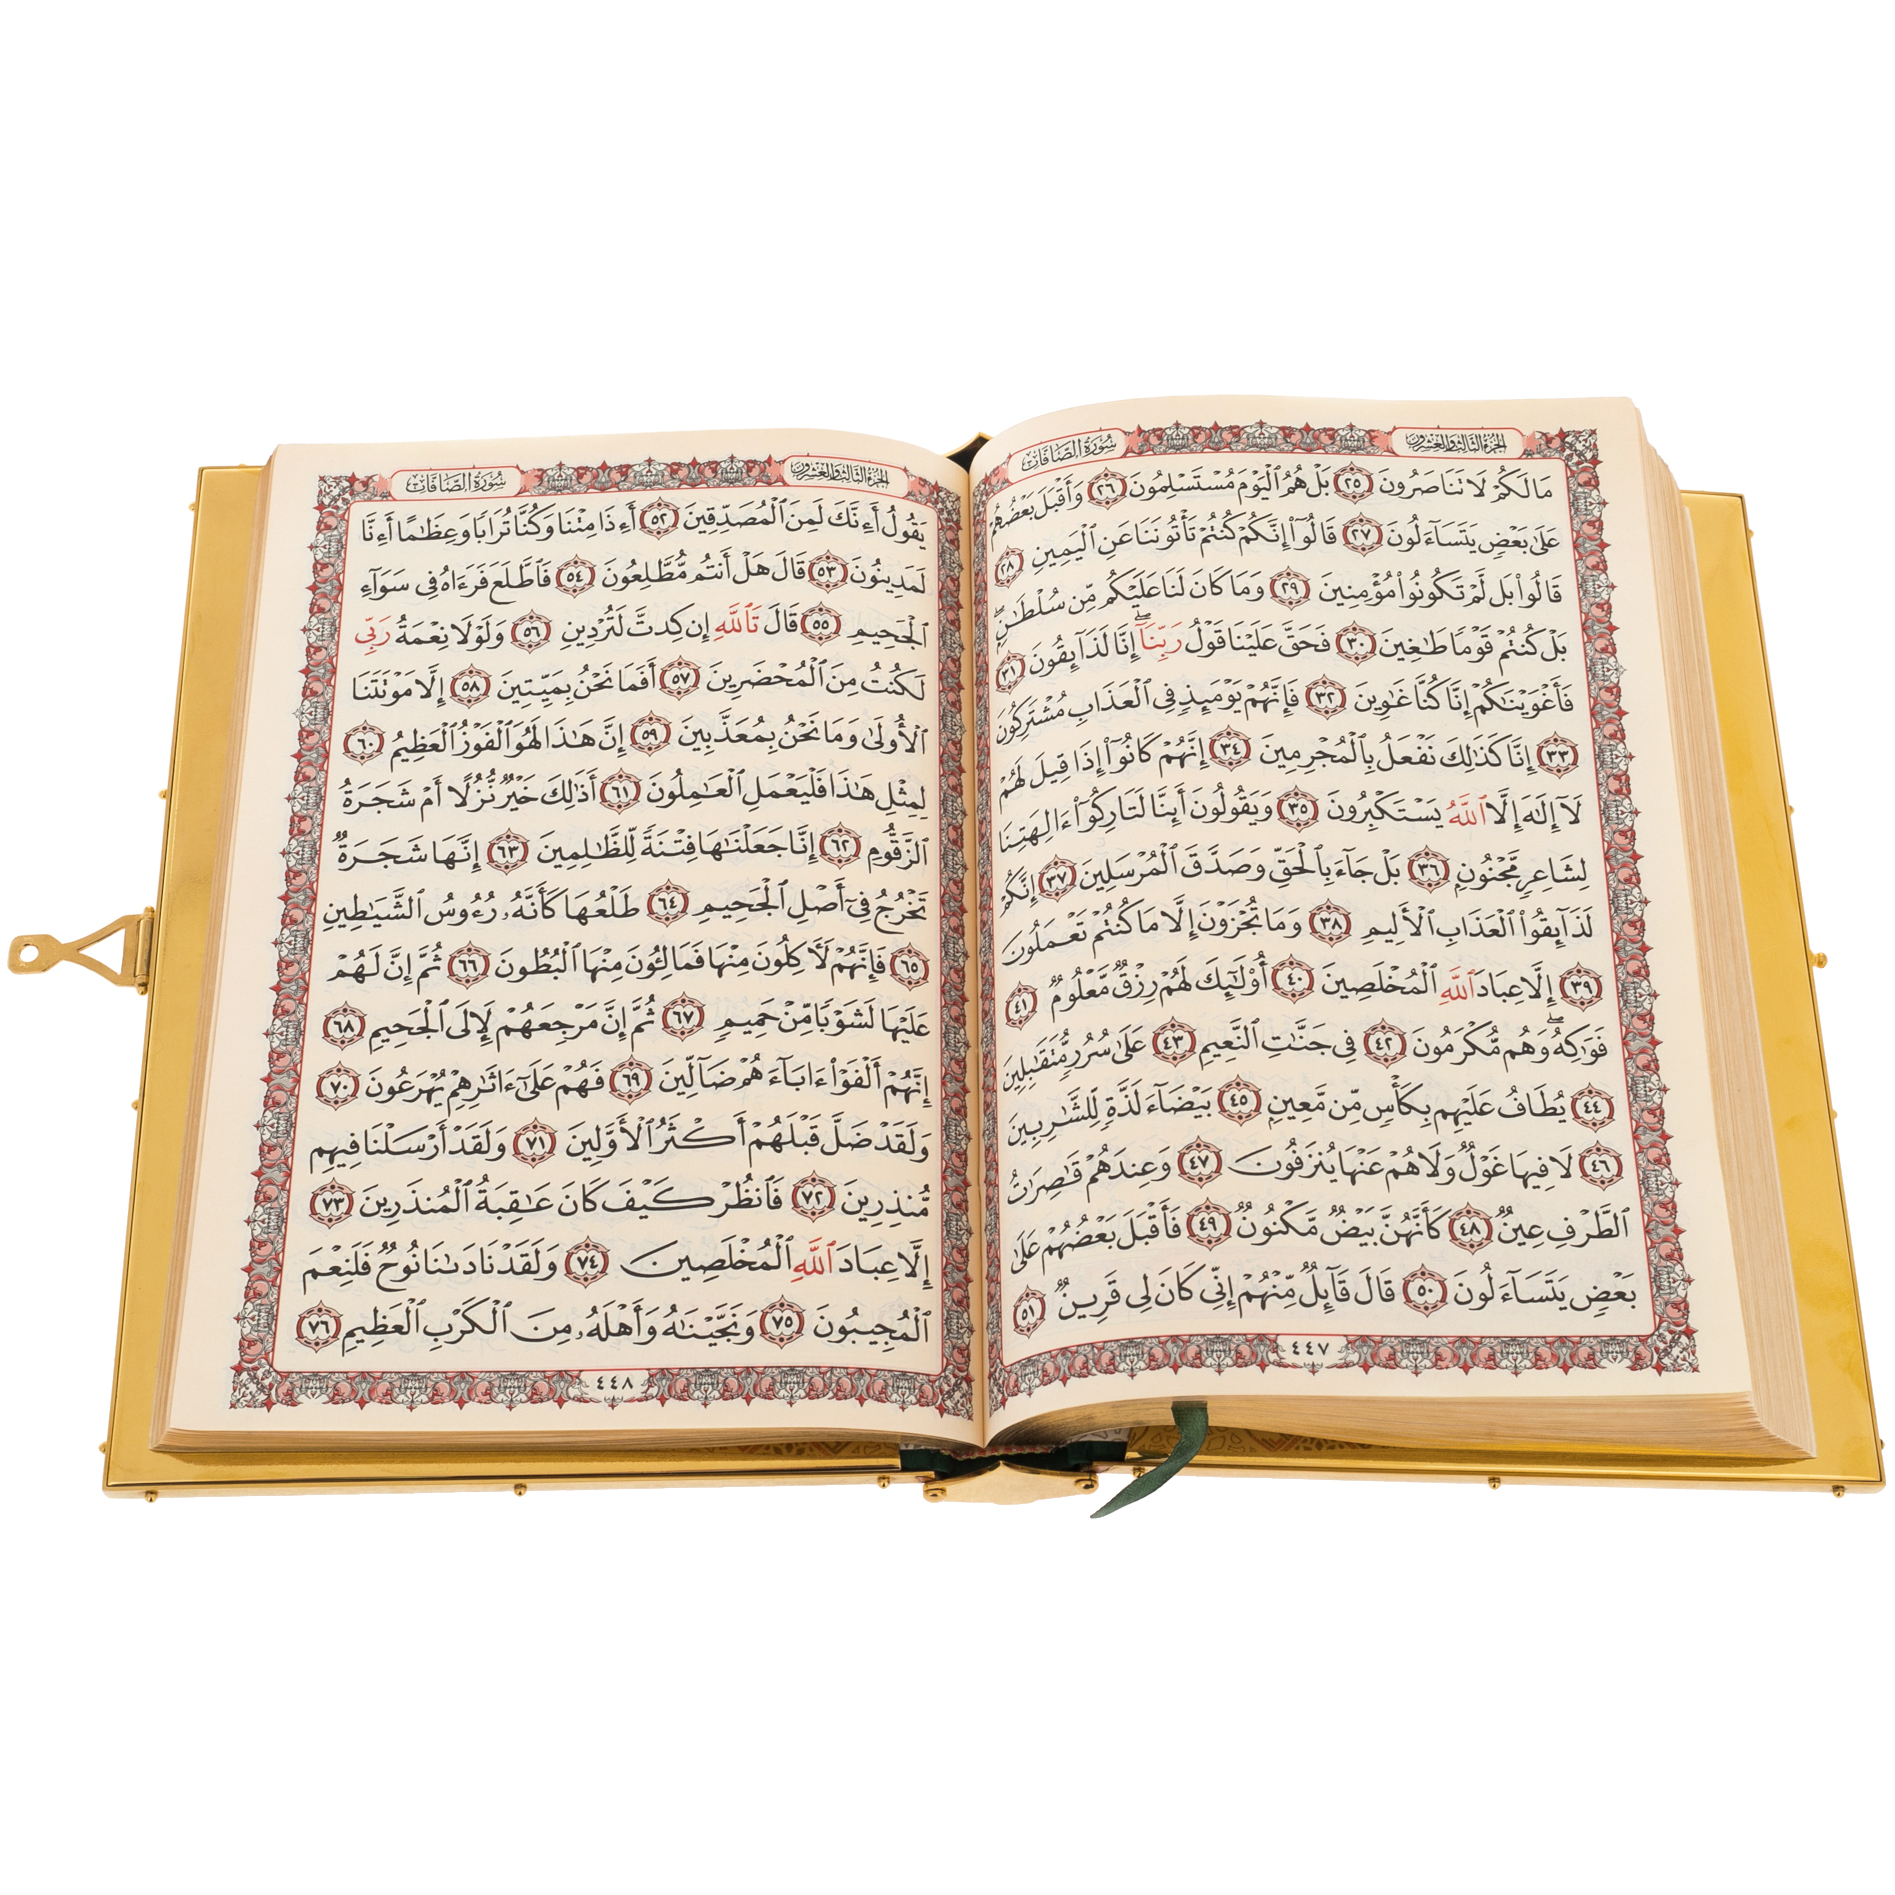 الجزء الثالث والعشرون
سورة الصافات
مَا لَكُمْ لَا تَنَاصَرُونَ ٢٥ بَلْ هُمُ ٱلْيَوْمَ مُسْتَسْلِمُونَ ٢٦ وَأَقْبَلَ بَعْضُهُمْ
عَلَىٰ بَعْضٍ يَتَسَآءَلُونَ ٢٧ قَالُوٓا۟ إِنَّكُمْ كُنتُمْ تَأْتُونَنَا عَنِ ٱلْيَمِينِ ٢٨
قَالُوا۟ بَل لَّمْ تَكُونُوا۟ مُؤْمِنِينَ ٢٩ وَمَا كَانَ لَنَا عَلَيْكُم مِّن سُلْطَـٰنٍۭ ۖ
بَلْ كُنتُمْ قَوْمًا طَـٰغِينَ ٣٠ فَحَقَّ عَلَيْنَا قَوْلُ رَبِّنَآ ۖ إِنَّا لَذَآئِقُونَ ٣١
فَأَغْوَيْنَـٰكُمْ إِنَّا كُنَّا غَـٰوِينَ ٣٢ فَإِنَّهُمْ يَوْمَئِذٍ فِى ٱلْعَذَابِ مُشْتَرِكُونَ
٣٣ إِنَّا كَذَٰلِكَ نَفْعَلُ بِٱلْمُجْرِمِينَ ٣٤ إِنَّهُمْ كَانُوٓا۟ إِذَا قِيلَ لَهُمْ
لَآ إِلَـٰهَ إِلَّا ٱللَّهُ يَسْتَكْبِرُونَ ٣٥ وَيَقُولُونَ أَئِنَّا لَتَارِكُوٓا۟ ءَالِهَتِنَا
لِشَاعِرٍ مَّجْنُونٍۭ ٣٦ بَلْ جَآءَ بِٱلْحَقِّ وَصَدَّقَ ٱلْمُرْسَلِينَ ٣٧ إِنَّكُمْ
لَذَآئِقُوا۟ ٱلْعَذَابِ ٱلْأَلِيمِ ٣٨ وَمَا تُجْزَوْنَ إِلَّا مَا كُنتُمْ تَعْمَلُونَ
٣٩ إِلَّا عِبَادَ ٱللَّهِ ٱلْمُخْلَصِينَ ٤٠ أُو۟لَـٰٓئِكَ لَهُمْ رِزْقٌ مَّعْلُومٌ ٤١
فَوَٰكِهُ ۖ وَهُم مُّكْرَمُونَ ٤٢ فِى جَنَّـٰتِ ٱلنَّعِيمِ ٤٣ عَلَىٰ سُرُرٍ مُّتَقَـٰبِلِينَ
٤٤ يُطَافُ عَلَيْهِم بِكَأْسٍ مِّن مَّعِينٍۭ ٤٥ بَيْضَآءَ لَذَّةٍ لِّلشَّـٰرِبِينَ
٤٦ لَا فِيهَا غَوْلٌ وَلَا هُمْ عَنْهَا يُنزَفُونَ ٤٧ وَعِندَهُمْ قَـٰصِرَٰتُ
ٱلطَّرْفِ عِينٌ ٤٨ كَأَنَّهُنَّ بَيْضٌ مَّكْنُونٌ ٤٩ فَأَقْبَلَ بَعْضُهُمْ عَلَىٰ
بَعْضٍ يَتَسَآءَلُونَ ٥٠ قَالَ قَآئِلٌ مِّنْهُمْ إِنِّى كَانَ لِى قَرِينٌ ٥١
٤٤٧
الجزء الثالث والعشرون
سورة الصافات
يَقُولُ أَءِنَّكَ لَمِنَ ٱلْمُصَدِّقِينَ ٥٢ أَءِذَا مِتْنَا وَكُنَّا تُرَابًا وَعِظَـٰمًا أَءِنَّا
لَمَدِينُونَ ٥٣ قَالَ هَلْ أَنتُم مُّطَّلِعُونَ ٥٤ فَٱطَّلَعَ فَرَءَاهُ فِى سَوَآءِ
ٱلْجَحِيمِ ٥٥ قَالَ تَٱللَّهِ إِن كِدتَّ لَتُرْدِينِ ٥٦ وَلَوْلَا نِعْمَةُ رَبِّى
لَكُنتُ مِنَ ٱلْمُحْضَرِينَ ٥٧ أَفَمَا نَحْنُ بِمَيِّتِينَ ٥٨ إِلَّا مَوْتَتَنَا
ٱلْأُولَىٰ وَمَا نَحْنُ بِمُعَذَّبِينَ ٥٩ إِنَّ هَـٰذَا لَهُوَ ٱلْفَوْزُ ٱلْعَظِيمُ ٦٠
لِمِثْلِ هَـٰذَا فَلْيَعْمَلِ ٱلْعَـٰمِلُونَ ٦١ أَذَٰلِكَ خَيْرٌ نُّزُلًا أَمْ شَجَرَةُ
ٱلزَّقُّومِ ٦٢ إِنَّا جَعَلْنَـٰهَا فِتْنَةً لِّلظَّـٰلِمِينَ ٦٣ إِنَّهَا شَجَرَةٌ
تَخْرُجُ فِىٓ أَصْلِ ٱلْجَحِيمِ ٦٤ طَلْعُهَا كَأَنَّهُۥ رُءُوسُ ٱلشَّيَـٰطِينِ
٦٥ فَإِنَّهُمْ لَـَٔاكِلُونَ مِنْهَا فَمَالِـُٔونَ مِنْهَا ٱلْبُطُونَ ٦٦ ثُمَّ إِنَّ لَهُمْ
عَلَيْهَا لَشَوْبًا مِّنْ حَمِيمٍ ٦٧ ثُمَّ إِنَّ مَرْجِعَهُمْ لَإِلَى ٱلْجَحِيمِ ٦٨
إِنَّهُمْ أَلْفَوْا۟ ءَابَآءَهُمْ ضَآلِّينَ ٦٩ فَهُمْ عَلَىٰٓ ءَاثَـٰرِهِمْ يُهْرَعُونَ ٧٠
وَلَقَدْ ضَلَّ قَبْلَهُمْ أَكْثَرُ ٱلْأَوَّلِينَ ٧١ وَلَقَدْ أَرْسَلْنَا فِيهِم
مُّنذِرِينَ ٧٢ فَٱنظُرْ كَيْفَ كَانَ عَـٰقِبَةُ ٱلْمُنذَرِينَ ٧٣
إِلَّا عِبَادَ ٱللَّهِ ٱلْمُخْلَصِينَ ٧٤ وَلَقَدْ نَادَىٰنَا نُوحٌ فَلَنِعْمَ
ٱلْمُجِيبُونَ ٧٥ وَنَجَّيْنَـٰهُ وَأَهْلَهُۥ مِنَ ٱلْكَرْبِ ٱلْعَظِيمِ ٧٦
٤٤٨